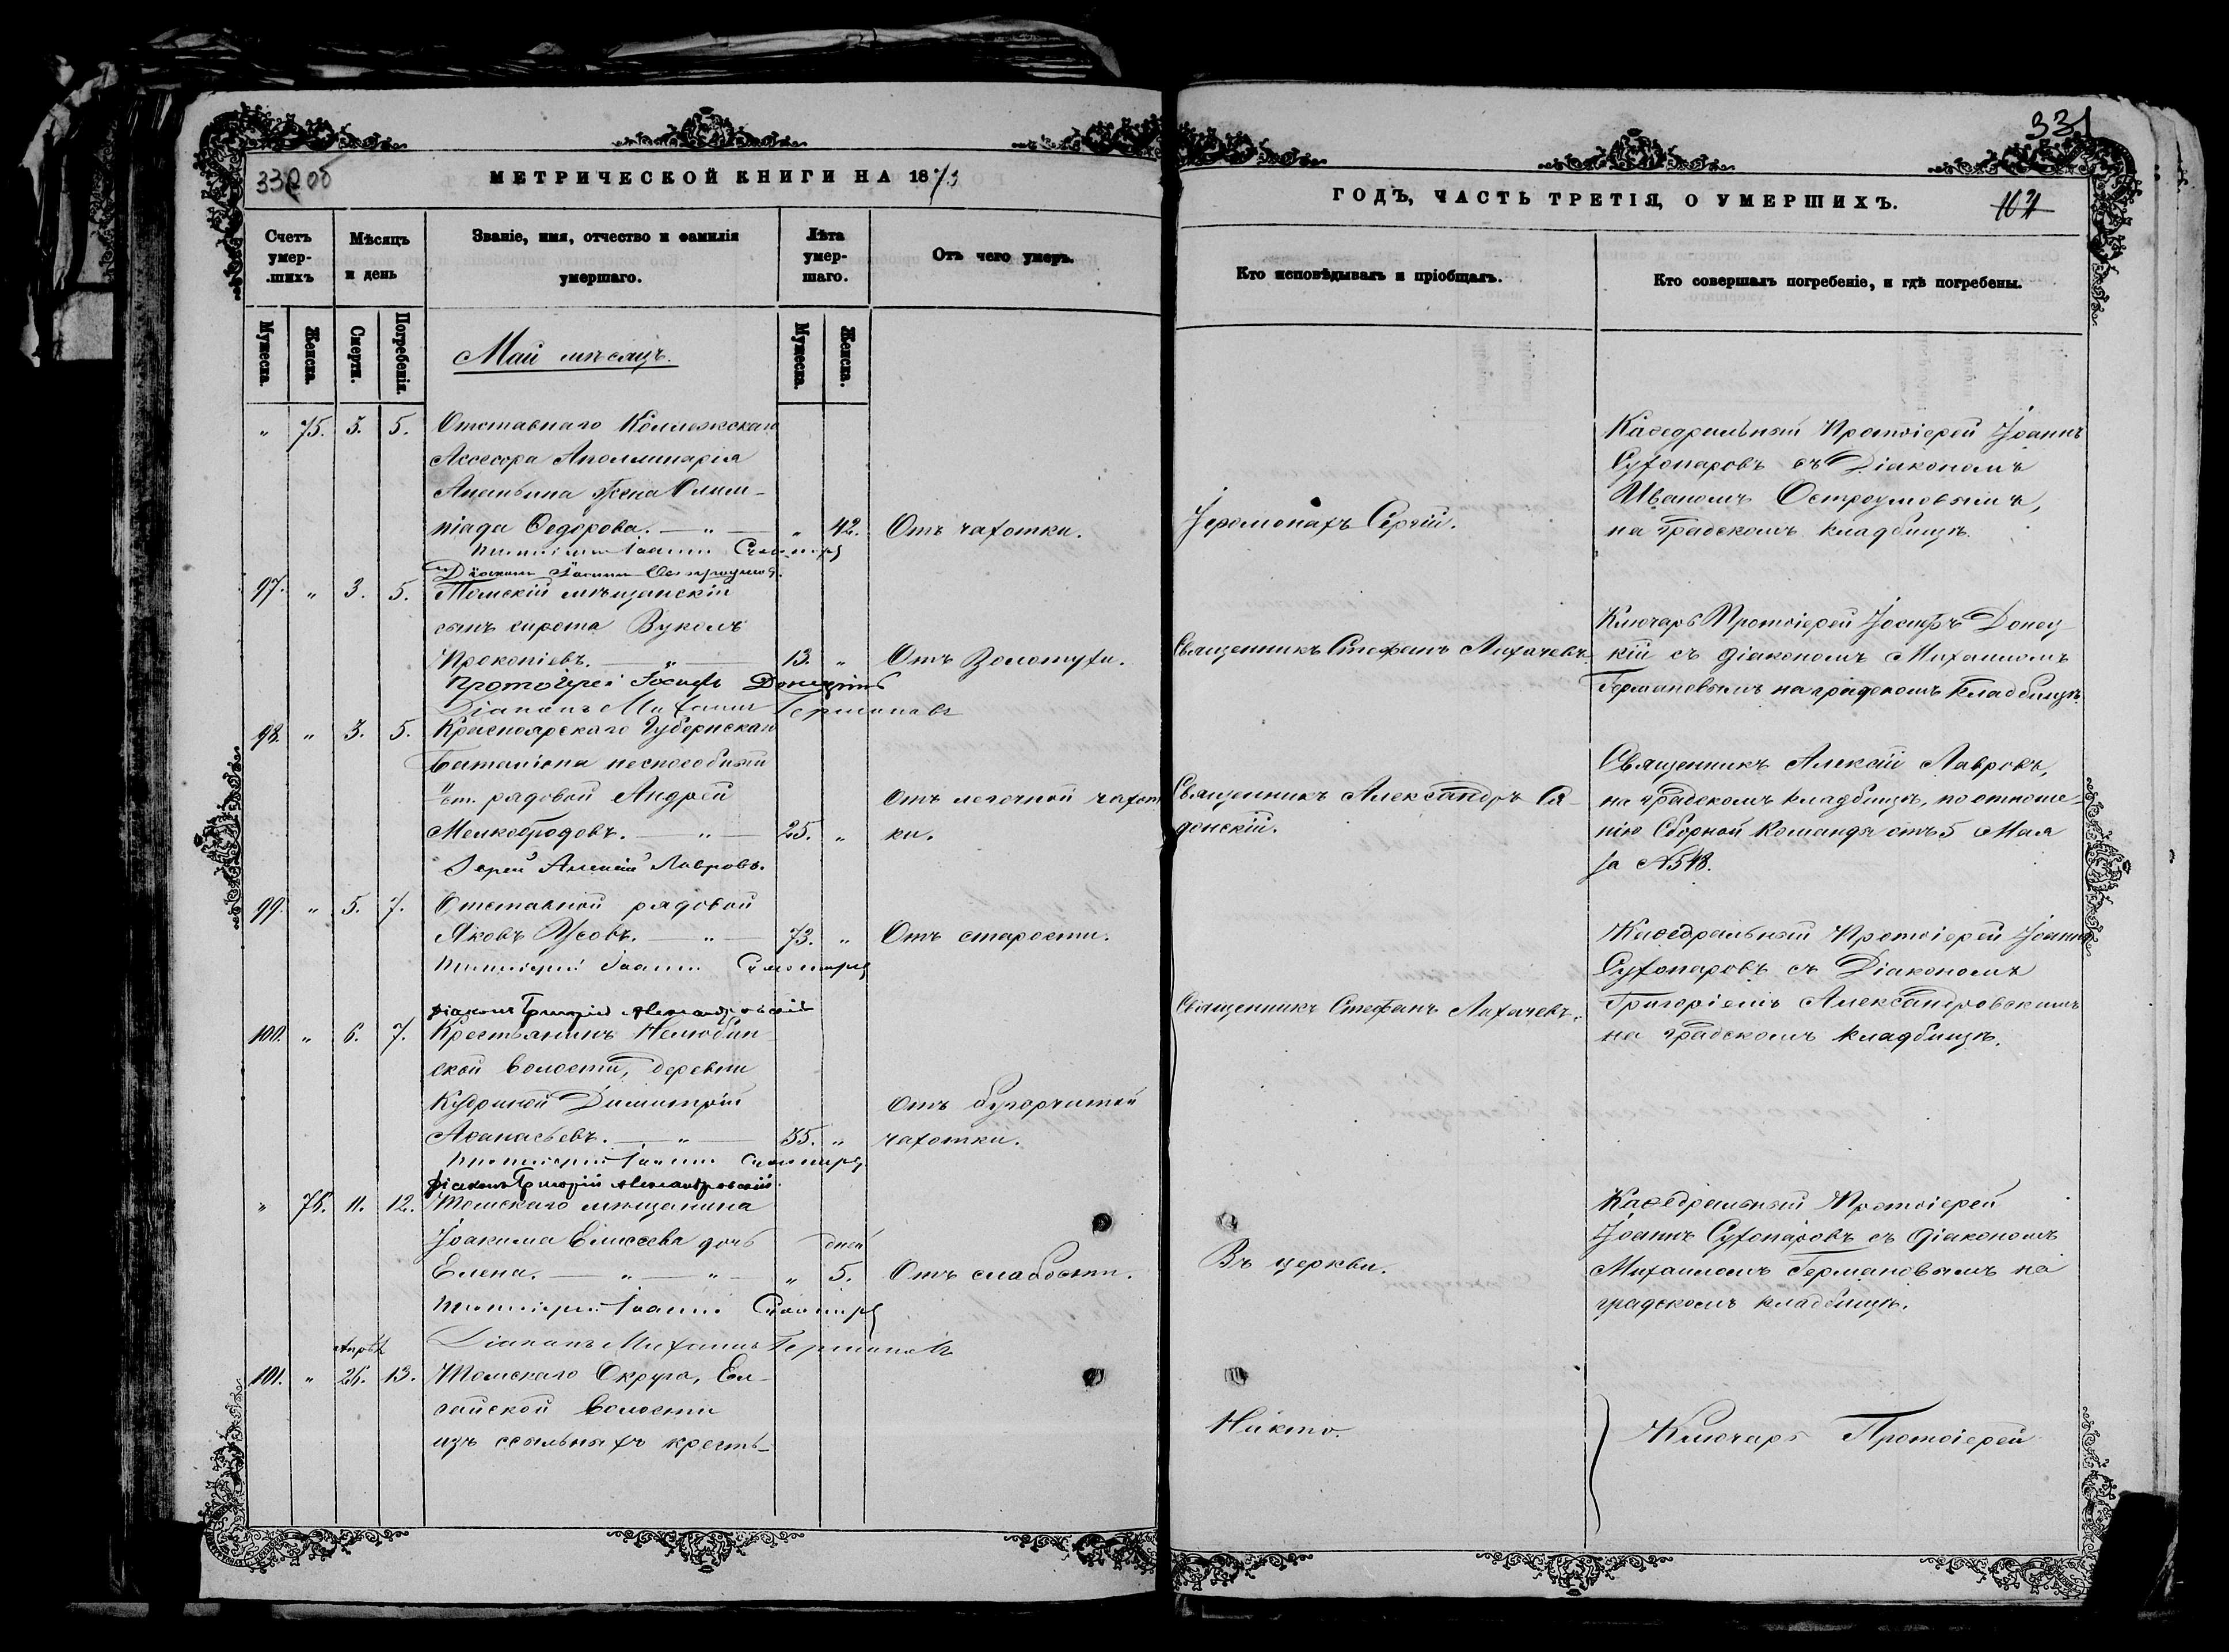 330об
МЕТРИЧЕСКОЙ КНИГИ НА 1873
Счетъ умер-шихъ
Мѣсяцъ и день
Званіе, имя, отчество и фамилія умершаго.
Лѣта умер-шаго.
Отъ чего умеръ.
Мужеска.
Женска.
Смерти.
Погребенія.
Мужеска.
Женска.
Май мѣсяцъ.
„ 75. 3. 5. Отставнаго Коллежскаго
Ассесора Аполлинарія
Ананьина жена Олим-
піада Ѳедорова. — „ — „ 42. Отъ чахотки.
Діаконъ Іоаннъ Остроумовъ.
97. „ 3. 5. Томскій мѣщанскій
сынъ сирота Вуколъ
Прокопіевъ. — „ — 13. „ Отъ Золотухи.
Протоіерей Іосифъ Донецкій
Діаконъ Михаилъ Германовъ
98. „ 3. 5. Красноярскаго Губернскаго
Баталіона неспособный
рядовой Андрей
Мелкобродовъ. — „ — 25. „ Отъ легочной чахот
ки.
Іерей Алексій Лавровъ.
99. „ 5. 7. Отставной рядовой
Яковъ Усовъ. — „ — 73. „ Отъ старости.
Протоіерей Іоаннъ
Діаконъ Григорій Александровскій
100. „ 6. 7. Крестьянинъ Нелюбин-
ской волости, деревни
Кудриной Димитрій
Аѳанасьевъ. — „ — 35. „ Отъ бугорчатой
чахотки.
Протоіерей Іоаннъ
Діаконъ Григорій Александровскій.
„ 76. 11. 12. Томскаго мѣщанина
Іоакима Елисеева дочь
дней
Елена. — „ — „ — „ 5. Отъ слабости.
Протоіерей Іоаннъ
Діаконъ Михаилъ Германовъ
Апрѣл
101. „ 26. 13. Томскаго Округа, Ел-
гайской волости
изъ ссыльныхъ кресть-
331
ГОДЪ, ЧАСТЬ ТРЕТІЯ, О УМЕРШИХЪ.
Кто исповѣдывалъ и пріобщалъ.
Кто совершалъ погребеніе, и гдѣ погребены.
Іеромонахъ Сергій.
Каѳедральный Протоіерей Іоаннъ
Сухопаровъ съ Діакономъ
Иваномъ Остроумовымъ,
на градскомъ кладбищѣ.
Священникъ Стефанъ Лихачевъ.
Ключарь Протоіерей Іосифъ Донец-
кій съ діакономъ Михаиломъ
Германовымъ на градскомъ кладбищѣ.
Священникъ Александръ Си-
донскій.
Священникъ Алексій Лавровъ,
на градскомъ кладбищѣ, по отноше-
нію Сборной Команды отъ 5 Мая
за №518.
Священникъ Стефанъ Лихачевъ.
Каѳедральный Протоіерей Іоаннъ
Сухопаровъ съ Діакономъ
Григоріемъ Александровскимъ
на градскомъ кладбищѣ.
Въ церкви.
Каѳедральный Протоіерей
Іоаннъ Сухопаровъ съ діакономъ
Михаиломъ Германовымъ на
градскомъ кладбищѣ.
Никто.
Ключарь Протоіерей